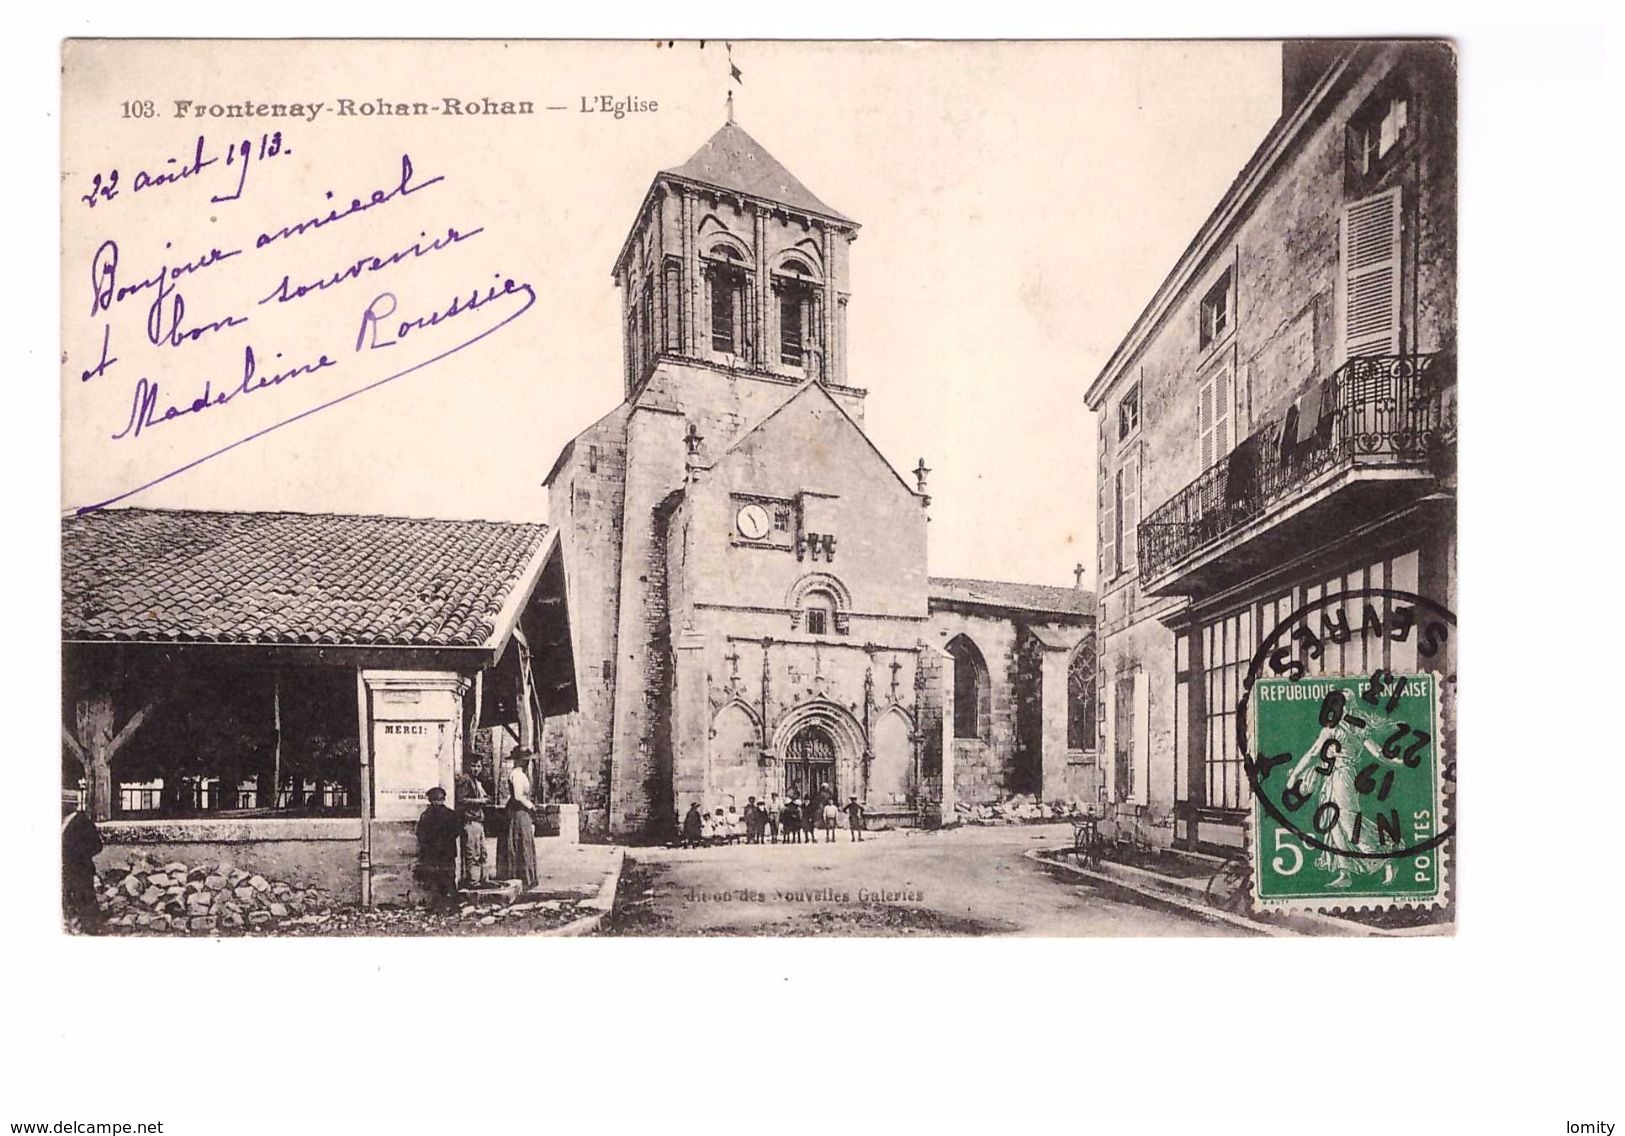 103. Frontenay-Rohan-Rohan — L'Eglise
22 août 1913.
Bonjour amical
et bon souvenir
Madeleine Roussie
MERCI
dition des Nouvelles Galeries
RÉPUBLIQUE FRANÇAISE
5c
POSTES
NIORT
SEVRES
19 5
22 -8
13
www.delcampe.net
lomity